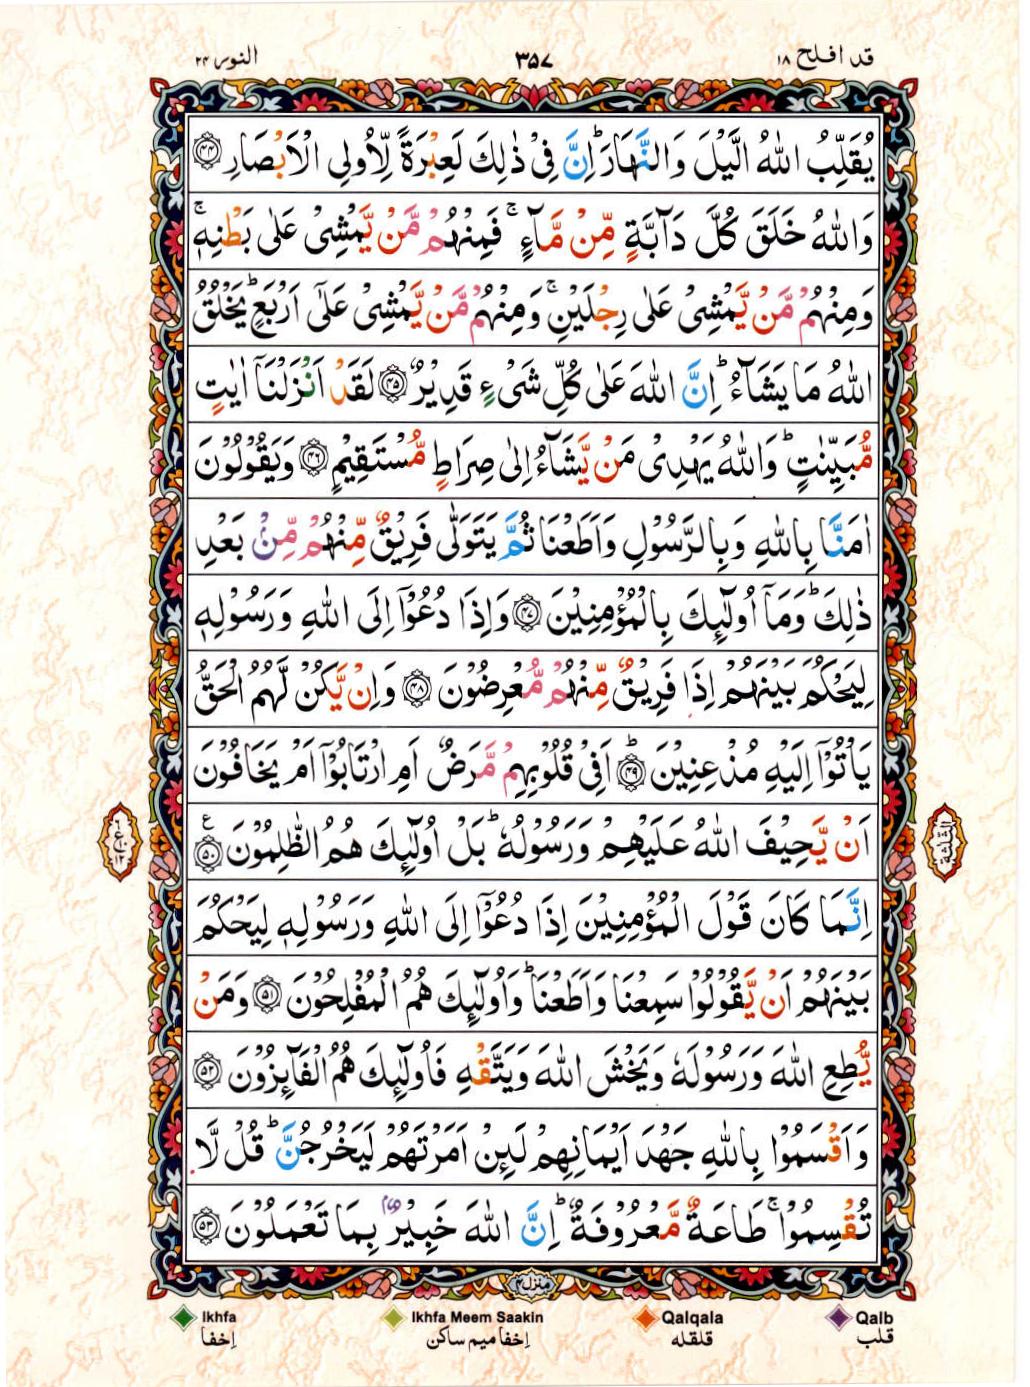 قد افلح ۱۸
۳۵۷
النور ۲۴
يُقَلِّبُ اللّٰهُ الَّيْلَ وَالنَّهَارَ ؕ اِنَّ فِىْ ذٰلِكَ لَعِبْرَةً لِّاُولِى الْاَبْصَارِ ﴿۴۴﴾
وَاللّٰهُ خَلَقَ كُلَّ دَآبَّةٍ مِّنْ مَّآءٍ ۚ فَمِنْهُمْ مَّنْ يَّمْشِىْ عَلٰى بَطْنِهٖ ۚ
وَمِنْهُمْ مَّنْ يَّمْشِىْ عَلٰى رِجْلَيْنِ ۚ وَمِنْهُمْ مَّنْ يَّمْشِىْ عَلٰٓى اَرْبَعٍ ؕ يَخْلُقُ
اللّٰهُ مَا يَشَآءُ ؕ اِنَّ اللّٰهَ عَلٰى كُلِّ شَىْءٍ قَدِيْرٌ ﴿۴۵﴾ لَقَدْ اَنْزَلْنَاۤ اٰيٰتٍ
مُّبَيِّنٰتٍ ؕ وَاللّٰهُ يَهْدِىْ مَنْ يَّشَآءُ اِلٰى صِرَاطٍ مُّسْتَقِيْمٍ ﴿۴۶﴾ وَيَقُوْلُوْنَ
اٰمَنَّا بِاللّٰهِ وَبِالرَّسُوْلِ وَاَطَعْنَا ثُمَّ يَتَوَلّٰى فَرِيْقٌ مِّنْهُمْ مِّنْۢ بَعْدِ
ذٰلِكَ ؕ وَمَاۤ اُولٰٓئِكَ بِالْمُؤْمِنِيْنَ ﴿۴۷﴾ وَاِذَا دُعُوْۤا اِلَى اللّٰهِ وَرَسُوْلِهٖ
لِيَحْكُمَ بَيْنَهُمْ اِذَا فَرِيْقٌ مِّنْهُمْ مُّعْرِضُوْنَ ﴿۴۸﴾ وَاِنْ يَّكُنْ لَّهُمُ الْحَقُّ
يَاْتُوْۤا اِلَيْهِ مُذْعِنِيْنَ ؕ ﴿۴۹﴾ اَفِىْ قُلُوْبِهِمْ مَّرَضٌ اَمِ ارْتَابُوْۤا اَمْ يَخَافُوْنَ
اَنْ يَّحِيْفَ اللّٰهُ عَلَيْهِمْ وَرَسُوْلُهٗ ؕ بَلْ اُولٰٓئِكَ هُمُ الظّٰلِمُوْنَ ﴿۵۰﴾ ع
اِنَّمَا كَانَ قَوْلَ الْمُؤْمِنِيْنَ اِذَا دُعُوْۤا اِلَى اللّٰهِ وَرَسُوْلِهٖ لِيَحْكُمَ
بَيْنَهُمْ اَنْ يَّقُوْلُوْا سَمِعْنَا وَاَطَعْنَا ؕ وَاُولٰٓئِكَ هُمُ الْمُفْلِحُوْنَ ﴿۵۱﴾ وَمَنْ
يُّطِعِ اللّٰهَ وَرَسُوْلَهٗ وَيَخْشَ اللّٰهَ وَيَتَّقْهِ فَاُولٰٓئِكَ هُمُ الْفَآئِزُوْنَ ﴿۵۲﴾
وَاَقْسَمُوْا بِاللّٰهِ جَهْدَ اَيْمَانِهِمْ لَئِنْ اَمَرْتَهُمْ لَيَخْرُجُنَّ ؕ قُلْ لَّا
تُقْسِمُوْا ۚ طَاعَةٌ مَّعْرُوْفَةٌ ؕ اِنَّ اللّٰهَ خَبِيْرٌۢ بِمَا تَعْمَلُوْنَ ﴿۵۳﴾
الثلثة
۶ ع ۱۲
منزل ۴
Ikhfa Ikhfa Meem Saakin Qalqala Qalb
اِخفا اِخفا میم ساکن قلقله قلب